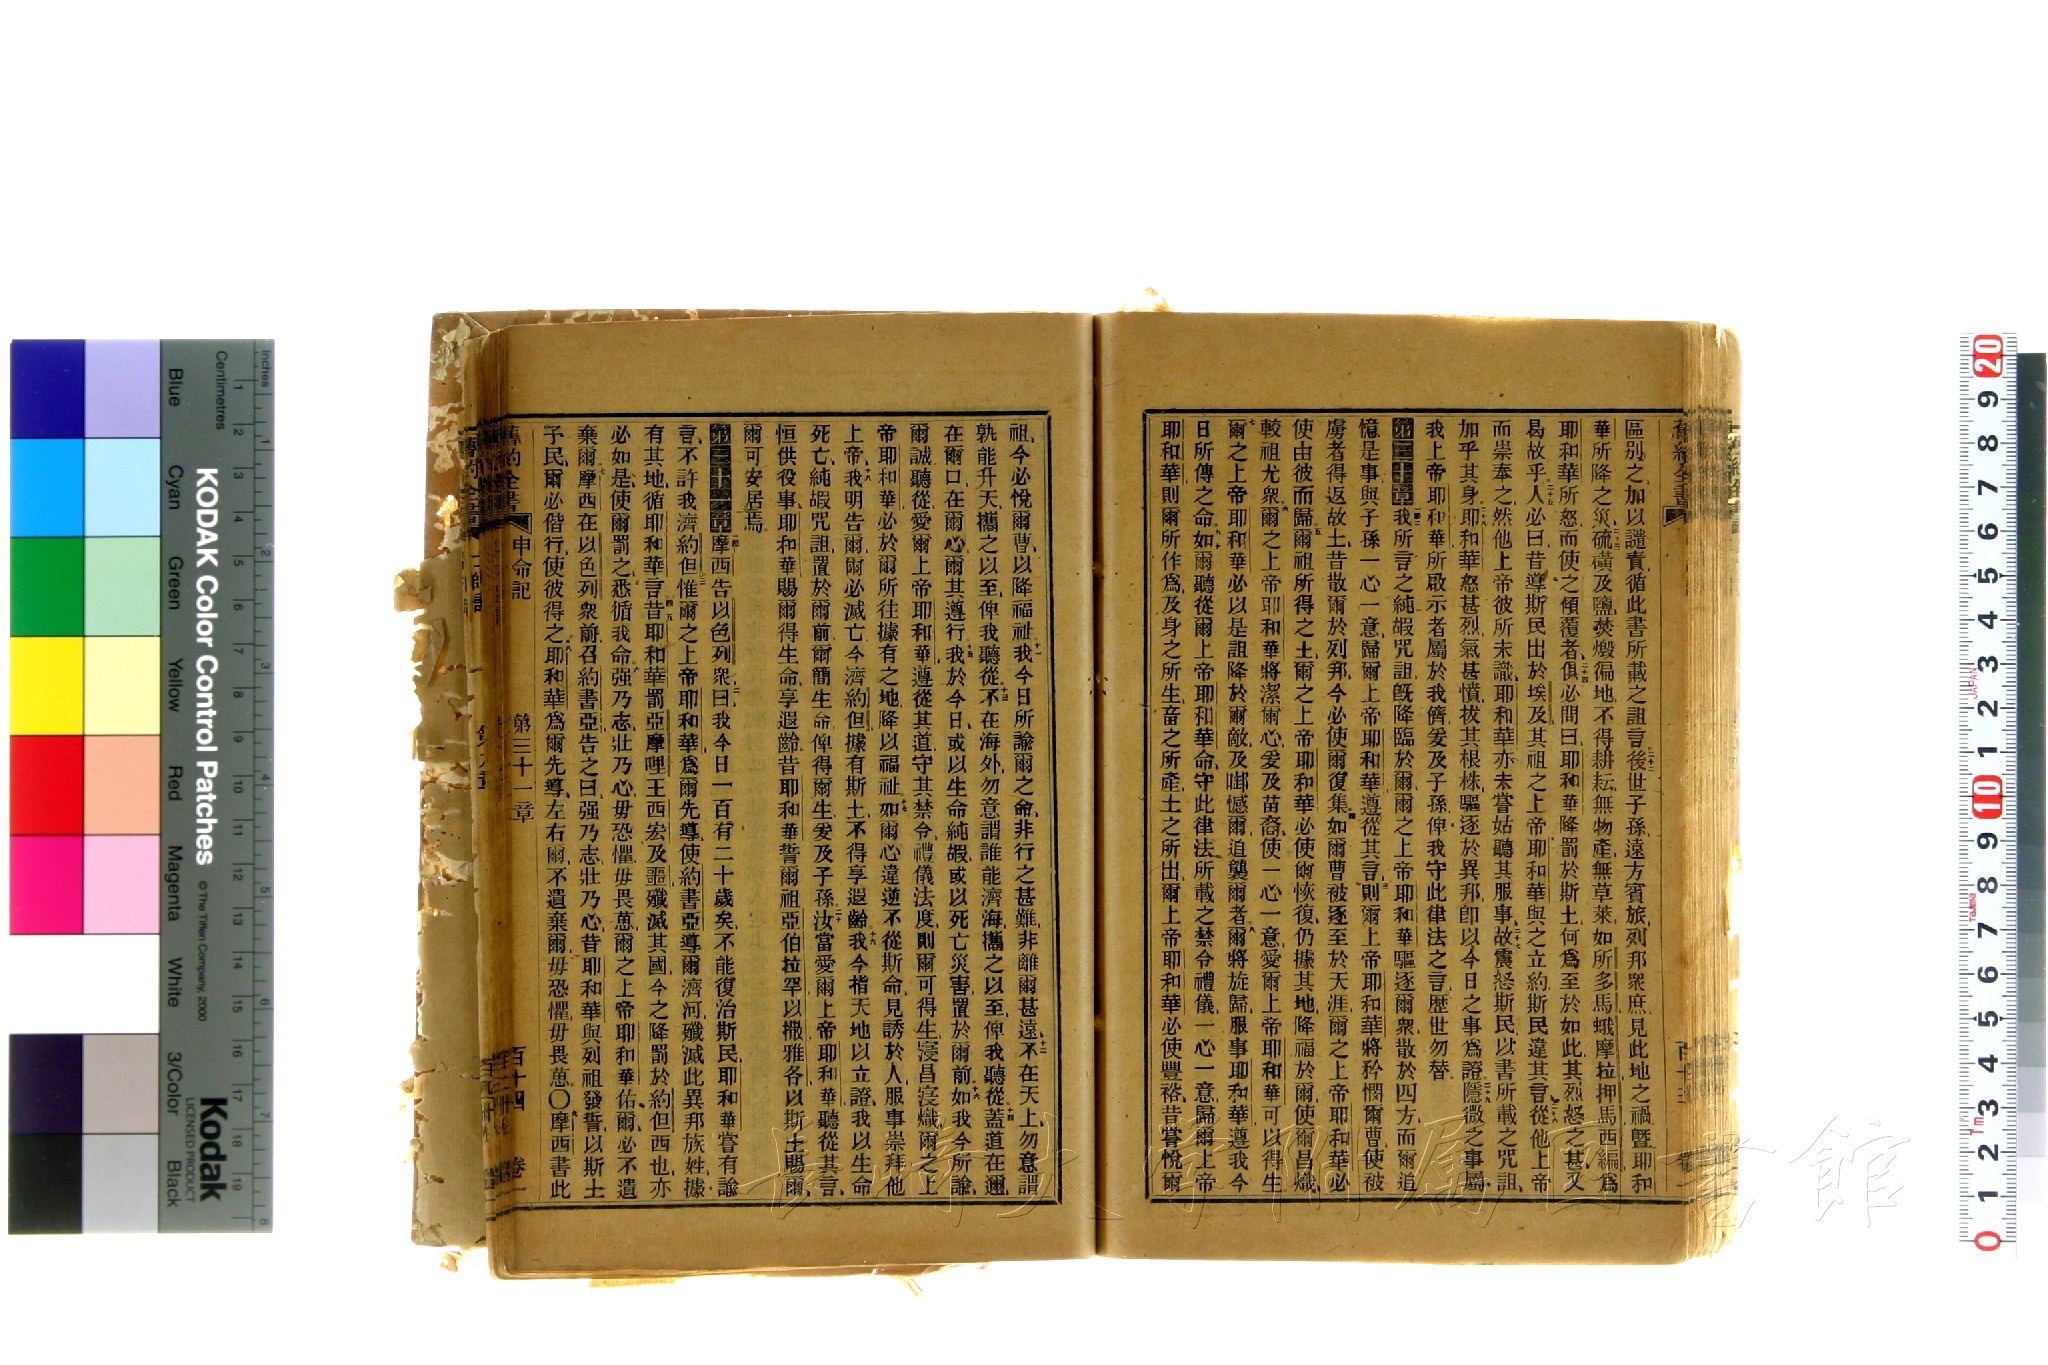 區別之加以譴責循此書所載之詛言後世子孫遠方賓旅列邦衆庶見此地之禍曁耶和
華所降之災硫磺及鹽焚燬徧地不得耕耘無物產無草萊如所多馬蛾摩拉押馬西編爲
耶和華所怒而使之傾覆者俱必問曰耶和華降罰於斯土何爲至於如此其烈怒之甚又
曷故乎人必曰昔導斯民出於埃及其祖之上帝耶和華與之立約斯民違其言從他上帝
而崇奉之然他上帝彼所未識耶和華亦未嘗姑聽其服事故震怒斯民以書所載之咒詛
加乎其身耶和華怒甚烈氣甚憤拔其根株驅逐於異邦卽以今日之事爲證隱微之事屬
我上帝耶和華所啟示者屬於我儕爰及子孫俾我守此律法之言歷世勿替
第三十章我所言之純嘏咒詛旣降臨於爾爾之上帝耶和華驅逐爾衆散於四方而爾追
憶是事與子孫一心一意歸爾上帝耶和華遵從其言則爾上帝耶和華將矜憫爾曹使被
虜者得返故土昔散爾於列邦今必使爾復集如爾曹被逐至於天涯爾之上帝耶和華必
使由彼而歸爾祖所得之土爾之上帝耶和華必使爾恢復仍據其地降福於爾使爾昌熾
較祖尤衆爾之上帝耶和華將潔爾心爰及苗裔使一心一意愛爾上帝耶和華可以得生
爾之上帝耶和華必以是詛降於爾敵及啣憾爾追襲爾者爾將旋歸服事耶和華遵我今
日所傳之命如爾聽從爾上帝耶和華命守此律法所載之禁令禮儀一心一意歸爾上帝
耶和華則爾所作爲及身之所生畜之所產土之所出爾上帝耶和華必使豐裕昔嘗悅爾
祖今必悅爾曹以降福祉我今日所諭爾之命非行之甚難非離爾甚遠不在天上勿意謂
孰能升天攜之以至俾我聽從不在海外勿意謂誰能濟海攜之以至俾我聽從蓋道在邇
在爾口在爾心爾其遵行我於今日或以生命純嘏或以死亡災害置於爾前如我今所諭
爾誠聽從愛爾上帝耶和華遵從其道守其禁令禮儀法度則爾可得生寖昌寖熾爾之上
帝耶和華必於爾所往據有之地降以福祉如爾心違逆不從斯命見誘於人服事崇拜他
上帝我明告爾爾必滅亡今濟約但據有斯土不得享遐齡我今指天地以立證我以生命
死亡純嘏咒詛置於爾前爾簡生命俾得爾生爰及子孫汝當愛爾上帝耶和華聽從其言
恒供役事耶和華賜爾得生命享遐齡昔耶和華誓爾祖亞伯拉罕以撒雅各以斯土賜爾
爾可安居焉
第三十一章摩西告以色列衆曰我今日一百有二十歲矣不能復治斯民耶和華嘗有諭
言不許我濟約但惟爾之上帝耶和華爲爾先導使約書亞導爾濟河殲滅此異邦族姓據
有其地循耶和華言昔耶和華罰亞摩哩王西宏及噩殲滅其國今之降罰於約但西也亦
必如是使爾罰之悉循我命强乃志壯乃心毋恐懼毋畏葸爾之上帝耶和華佑爾必不遺
棄爾摩西在以色列衆前召約書亞告之曰强乃志壯乃心昔耶和華與列祖發誓以斯土
予民爾必偕行使彼得之耶和華爲爾先導左右爾不遺棄爾毋恐懼毋畏葸○摩西書此
舊約全書 申命記 第三十一章 百十四 卷一
KODAK Color Control Patches
© The Tiffen Company, 2000
Kodak
LICENSED PRODUCT
Inches
Centimetres
Blue
Cyan
Green
Yellow
Red
Magenta
White
3/Color
Black
JAPAN
長崎大学附属図書館